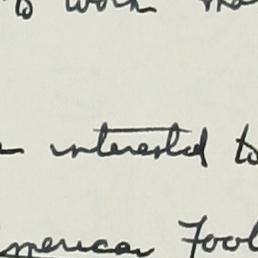 to work
interested to
American Fool